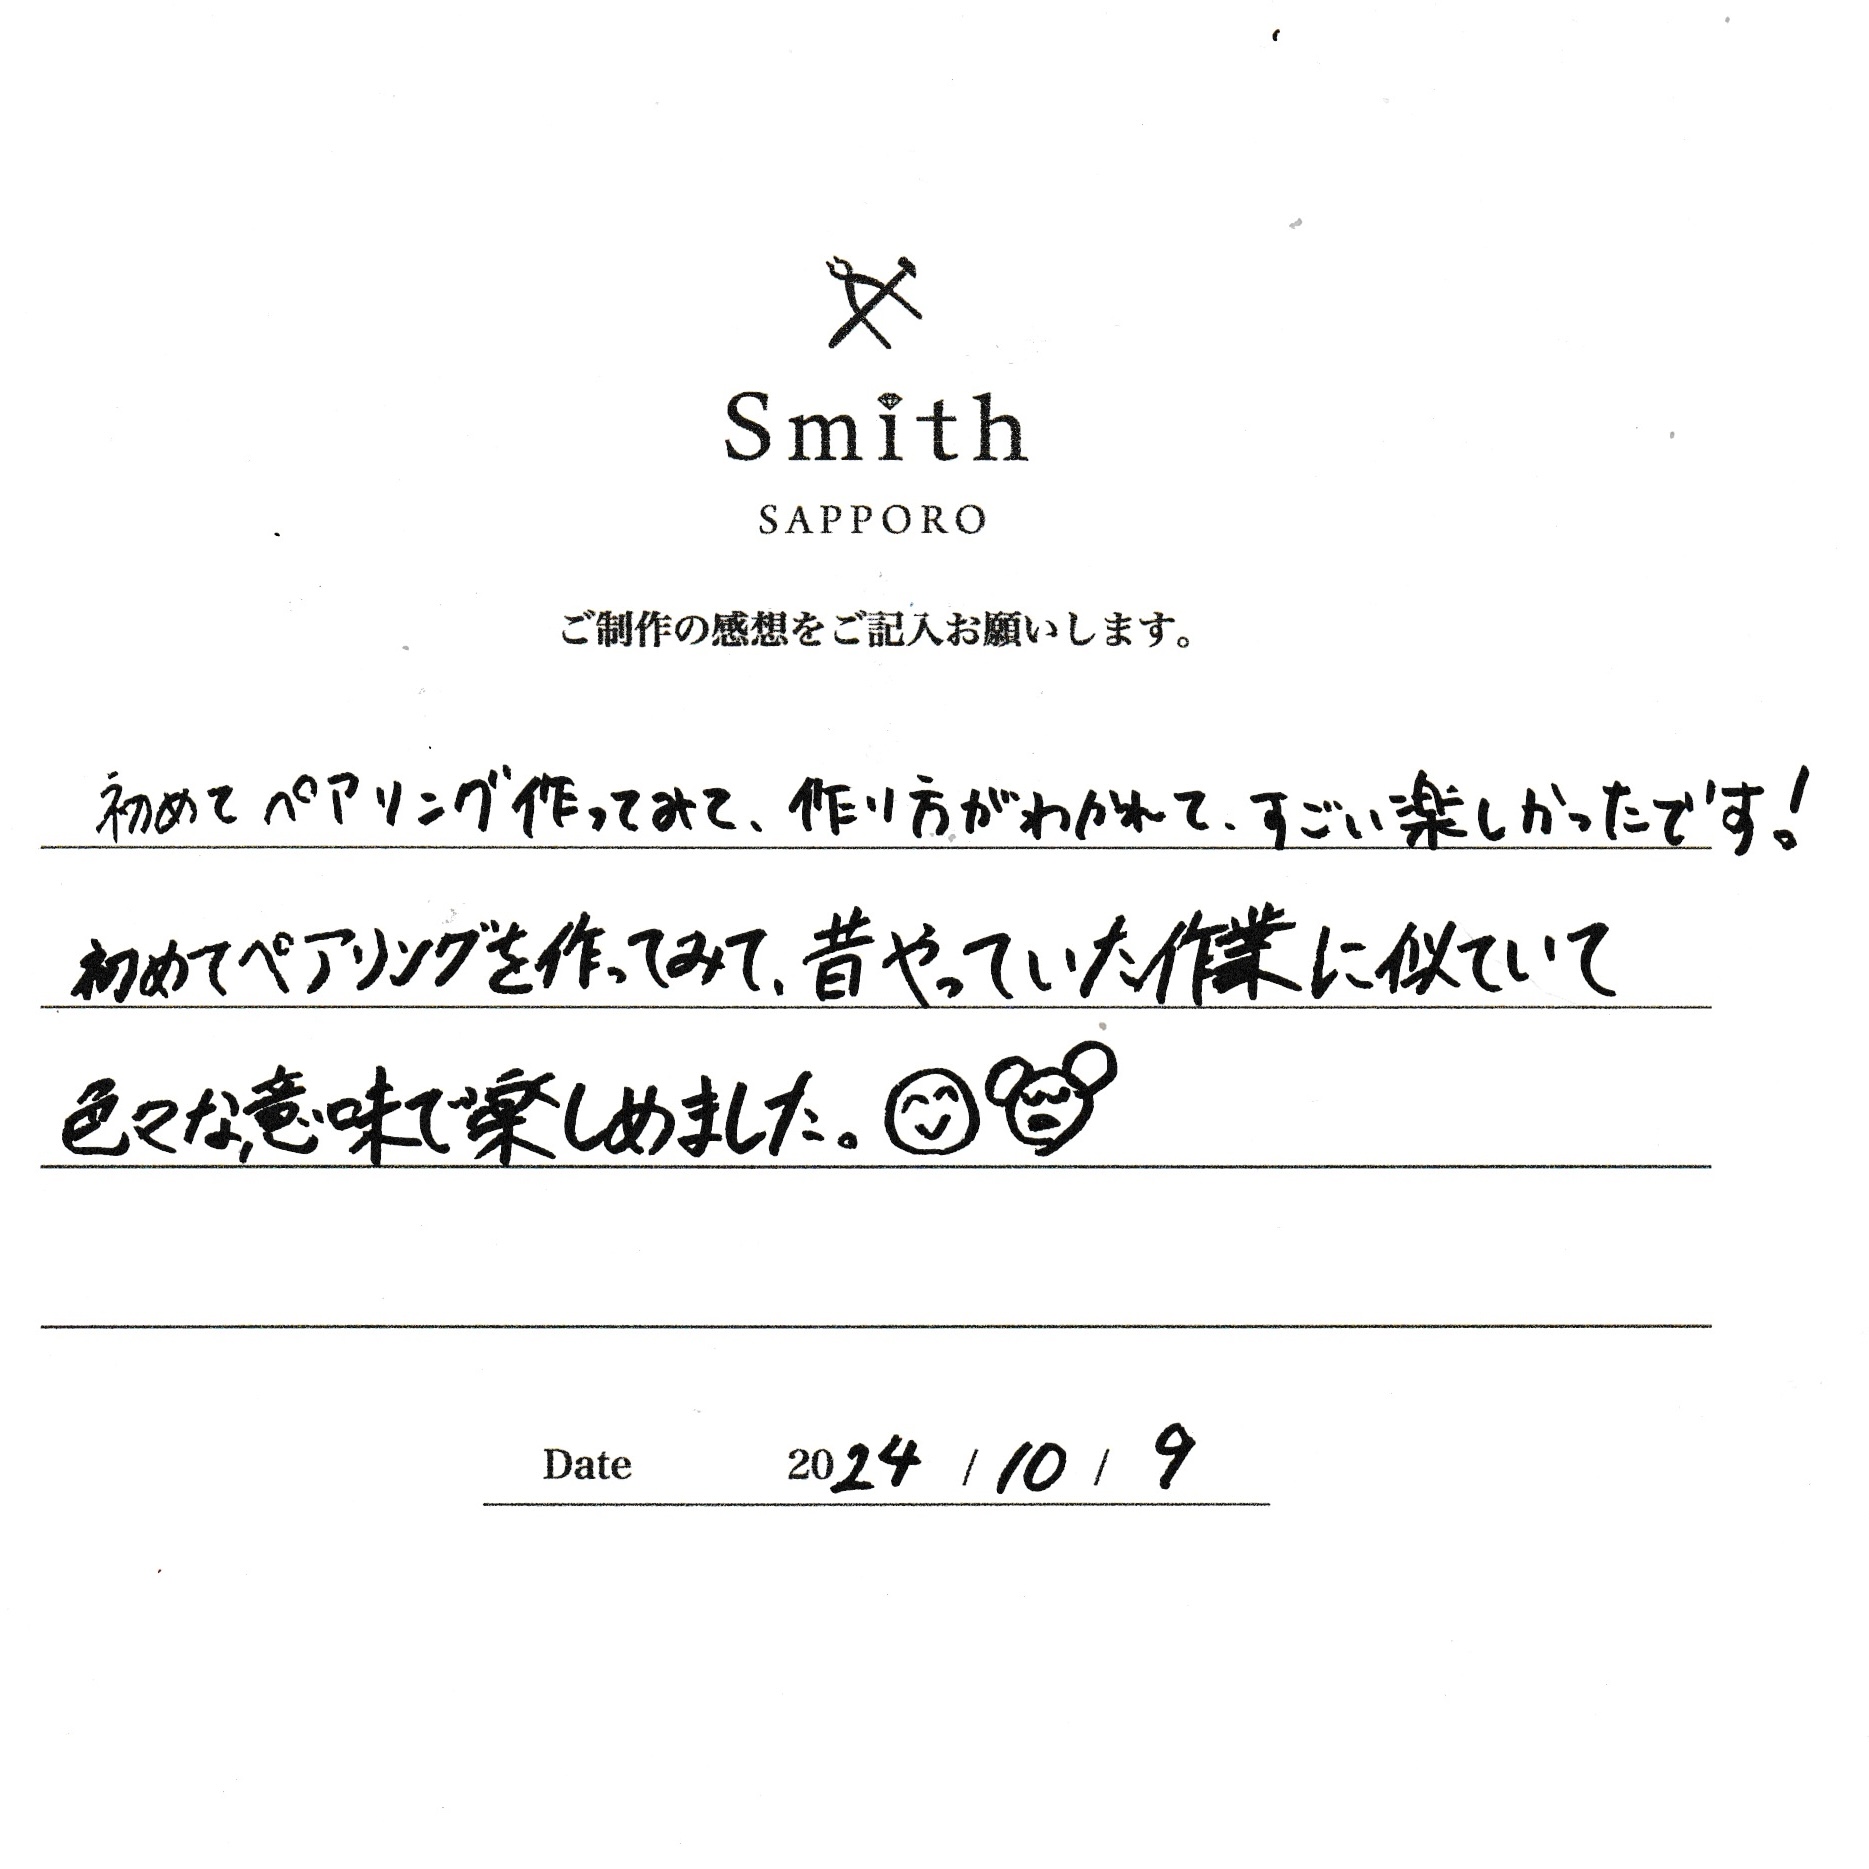 Smith
SAPPORO
ご制作の感想をご記入お願いします。
初めてペアリング作ってみて、作り方がわかれて、すごい楽しかったです!
初めてペアリングを作ってみて、昔やっていた作業に似ていて
色々な意味で楽しめました。
Date 2024 / 10 / 9